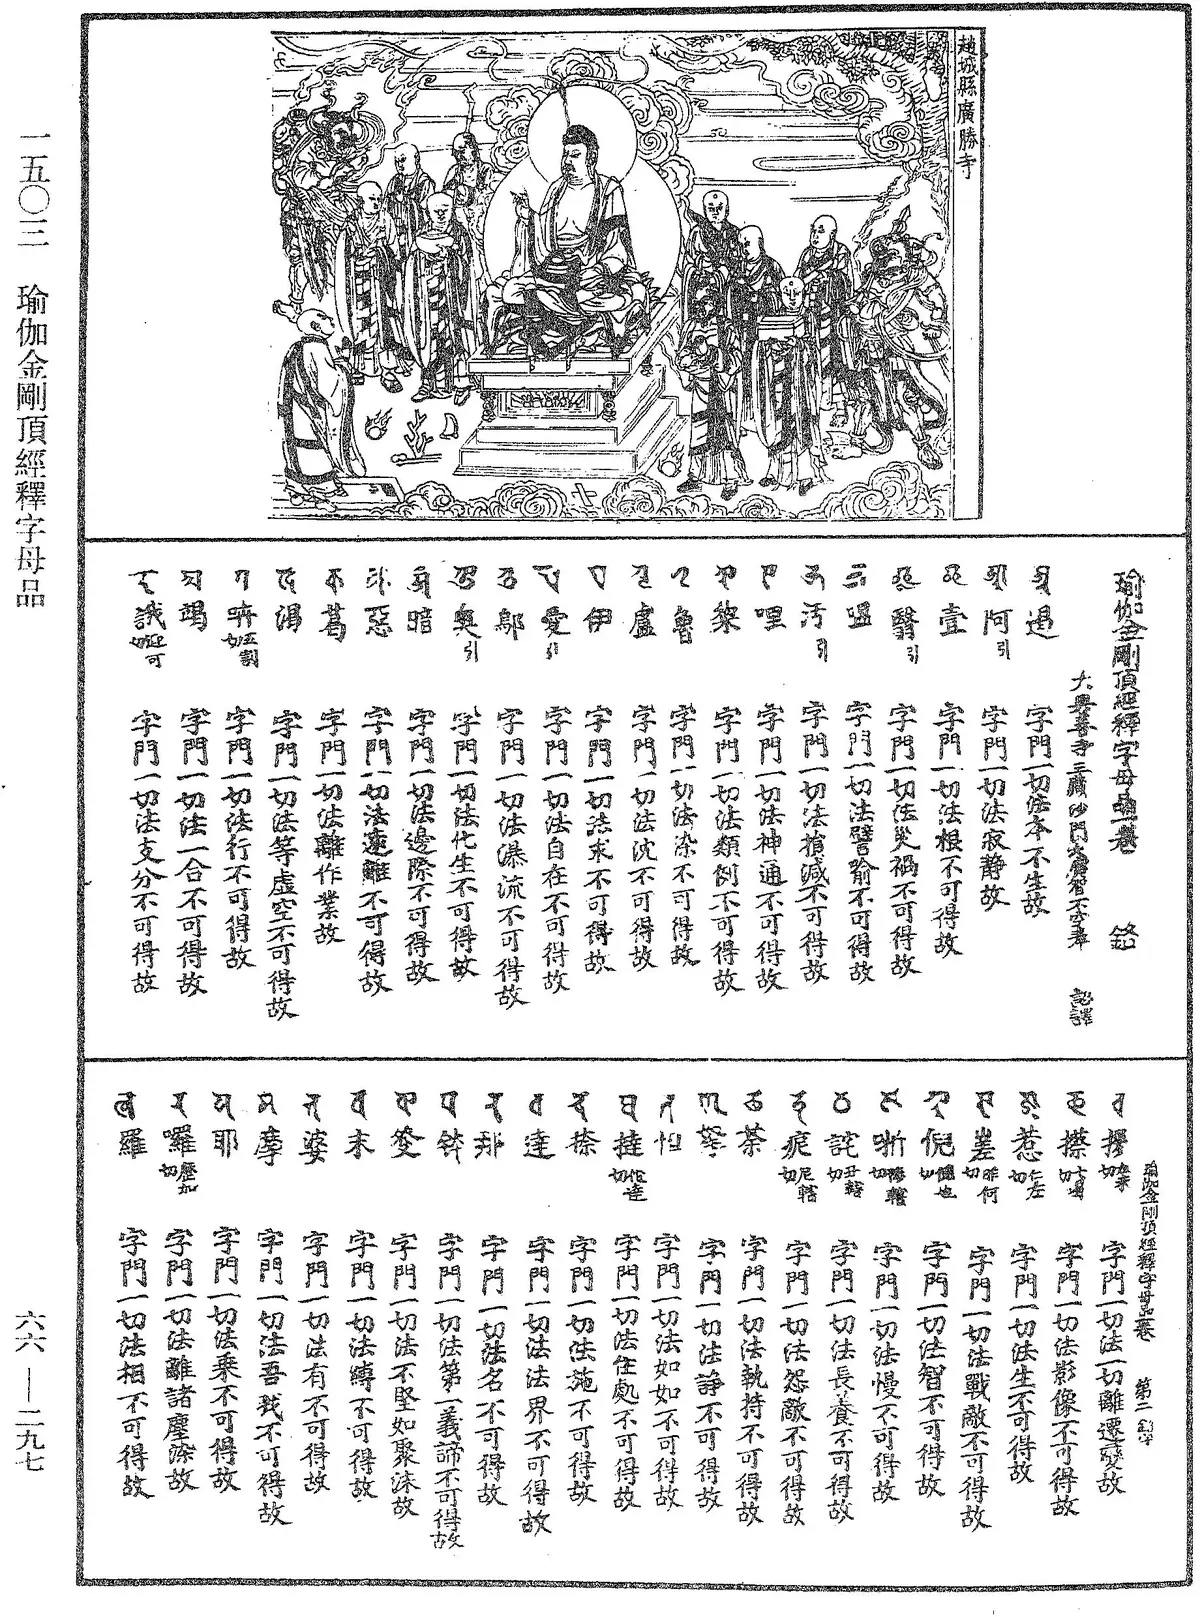 趙城縣廣勝寺
一五〇三　瑜伽金剛頂經釋字母品
瑜伽金剛頂經釋字母品一卷　銘
大興善寺三藏沙門大廣智不空奉　詔譯
遏　字門一切法本不生故
阿引　字門一切法寂靜故
壹　字門一切法根不可得故
翳引　字門一切法災禍不可得故
嗢　字門一切法譬喻不可得故
污引　字門一切法損減不可得故
哩　字門一切法神通不可得故
梨　字門一切法類例不可得故
魯　字門一切法染不可得故
盧　字門一切法沈不可得故
伊　字門一切法求不可得故
愛引　字門一切法自在不可得故
鄔　字門一切法瀑流不可得故
奧引　字門一切法化生不可得故
暗　字門一切法邊際不可得故
惡　字門一切法遠離不可得故
葛　字門一切法離作業故
渴　字門一切法等虛空不可得故
字門一切法行不可得故
竭　字門一切法一合不可得故
誐迎可切　字門一切法支分不可得故
瑜伽金剛頂經釋字母品一卷　第二
字門一切法一切離遷變故
擦七曷切　字門一切法影像不可得故
惹仁左切　字門一切法生不可得故
嵯昨何切　字門一切法戰敵不可得故
倪　字門一切法智不可得故
哳陟轄切　字門一切法慢不可得故
詫丑轄切　字門一切法長養不可得故
疤尼轄切　字門一切法怨敵不可得故
荼　字門一切法執持不可得故
拏　字門一切法諍不可得故
怛　字門一切法如如不可得故
撻他達切　字門一切法住處不可得故
捺　字門一切法施不可得故
達　字門一切法法界不可得故
那　字門一切法名不可得故
鉢　字門一切法第一義諦不可得故
發　字門一切法不堅如聚沫故
末　字門一切法縛不可得故
婆　字門一切法有不可得故
摩　字門一切法吾我不可得故
耶　字門一切法乘不可得故
囉歷加切　字門一切法離諸塵染故
羅　字門一切法相不可得故
六六—二九七